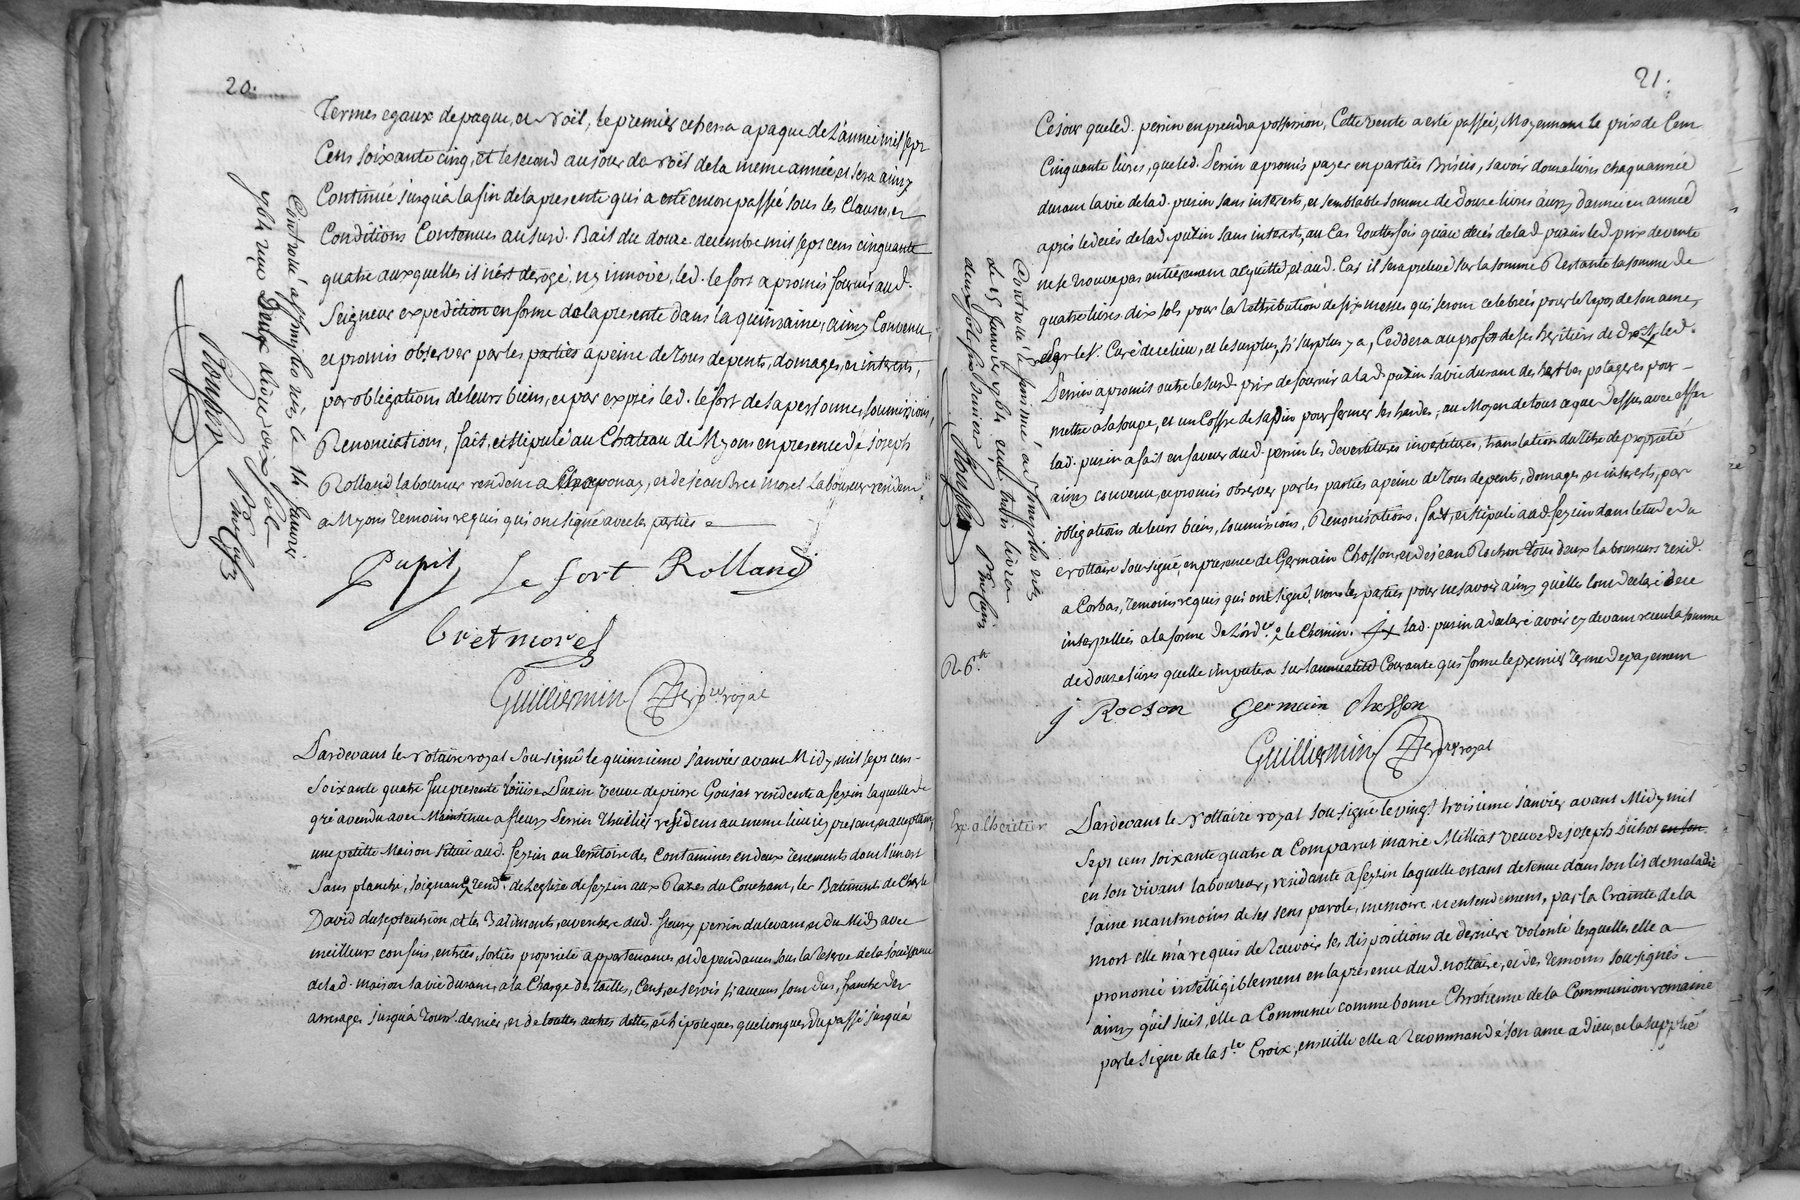 20.
Termes egaux de paque, et Noël, le premier echerra a paque de L'année mil sept
Cens soixante cinq, et le second au jour de Noël de la meme année et sera ainsy
Continué jusqu'a la fin de la presente qui a eté encor passée sous les Clauses, et
Conditions Contenues au susd. Bail du douze decembre mil sept cens cinquante
quatre auxquelles il n'est derogé, ny innové, led. le fort a promis fournir aud.
Seigneur expedition en forme de la presente dans la quinzaine, ainsy Convenu,
et promis observer par les parties a peine de tous depents, domages, et interets,
par obligations de leurs biens, et par exprès led. le fort de sa personne, soumissions,
Renonciations, fait, et stipulé au Chateau de Myons en presence de Joseph
Rolland laboureur resident a Chaponay, et de Jean Bret morel Laboureur resident
a Myons temoins requis qui ont signé avec les parties
Pupil Le fort Rolland
Bret morel
Guilliermin Nre royal
Controlé a st simphorien le 14 Janvier
1764 reçu Deux Livres six sols
Pardevant le Notaire royal sousigné le quinzieme janvier avant Midy mil sept cens
soixante quatre fut presente Loüise Puzin veuve de pierre Goujat residente a seyzin laquelle de
gré a vendu avec Maintenue a fleury Perrin thuillier resident au meme lieu icy present, et acceptant,
une petitte Maison situeé aud. seyzin au territoire des Contamines en deux tenements dont l'un est
sans planche, joignant rend. de l'eglise de seyzin aux Razes du Couchant, les Batiments de Charle
David du septention, et les Batiments, et verchere dud. fleury perrin du levant et du Midy avec
meilleurs confins, entrées, sorties proprieté appartenances, et dependances sous la Reserve de la joüissance
de lad. maison sa vie durant, a la Charge des tailles, Cens, et servis si aucuns sont dus, franche des
arrerages jusqu'a Jour dernier, et de touttes autres dettes, et hipoteques quelconques du passé jusqu'a
21.
Ce jour que led. perrin en prendra possession, Cette vente a eté passée, Moyennant le prix de Cent
Cinquante livres, que led. Perrin a promis payer en parties Brisées, savoir douze livres chaque année
durant la vie de lad. puzin sans interets, et semblable somme de douze livres aussy d'année en année
après le decés de lad. puzin sans interet, au Cas touttesfois qu'au decés de lad. puzin led. prix de vente
ne se trouve pas entierement acquitté, et aud. Cas il sera prelevé sur la somme Restante la somme de
quatre livres dix sols pour la Retribution de six messes qui seront celebrées pour le Repos de son ame
par le Sr. Curé de ce lieu, et le surplus, si surplus y a, Cedera au profit de ses heritiers de droit, led.
Perrin a promis outre le susd. prix de fournir a lad. puzin sa vie durant des herbes potageres pour
mettre a la soupe, et un Coffre de sapin pour fermer ses hardes, au Moyen de tout ce que dessus avec effet
lad. puzin a fait en faveur dud. perrin les devestitures investitures, translation du titre de proprieté
ainsy convenu, et promis observer par les parties a peine de tous depents, domages et interets, par
obligations de leurs biens, soumissions, Renonciations, fait, et stipulé aud. seyzin dans letude du
Nottaire sousigné, en presence de Germain Chosson, et de Jean Rochon tous deux laboureurs resid.
a Corbas, temoins requis qui ont signé, non les parties pour ne savoir ainsy qu'elles l'ont declaré de ce
interpellées a la forme de L'ordce. a le Chemin. lad. puzin a declaré avoir cy devant receu la somme
de douze livres quelle imputera sur l'annuité Courante qui forme le premier terme de payement
j Rocson Germain Chosson
Guilliermin Nre royal
Controlé et insinué a st simphorien
Le 15 Janvier 1764 reçu trois livres
deux sols six deniers
R. 6.
Ex. a lheritier
Pardevant le Nottaire royal sousigné le vingt troisieme janvier avant Midy mil
sept cens soixante quatre a Comparut marie Millias veuve de Joseph Bichot en son
en son vivant laboureur, residante a seyzin laquelle estant detenue dans son lit de maladie
saine neantmoins de ses sens parole, memoire, et entendement, par la Crainte de la
mort elle m'a requis de Recevoir ses dispositions de derniere volonté lesquelles elle a
prononcé intelligiblement en la presence dud. nottaire, et des temoins sousignés
ainsy qu'il suit, elle a Commencé comme bonne Chretienne de la Communion romaine
par le signe de la Ste Croix, ensuitte elle a recommandé son ame a dieu, et la supplié